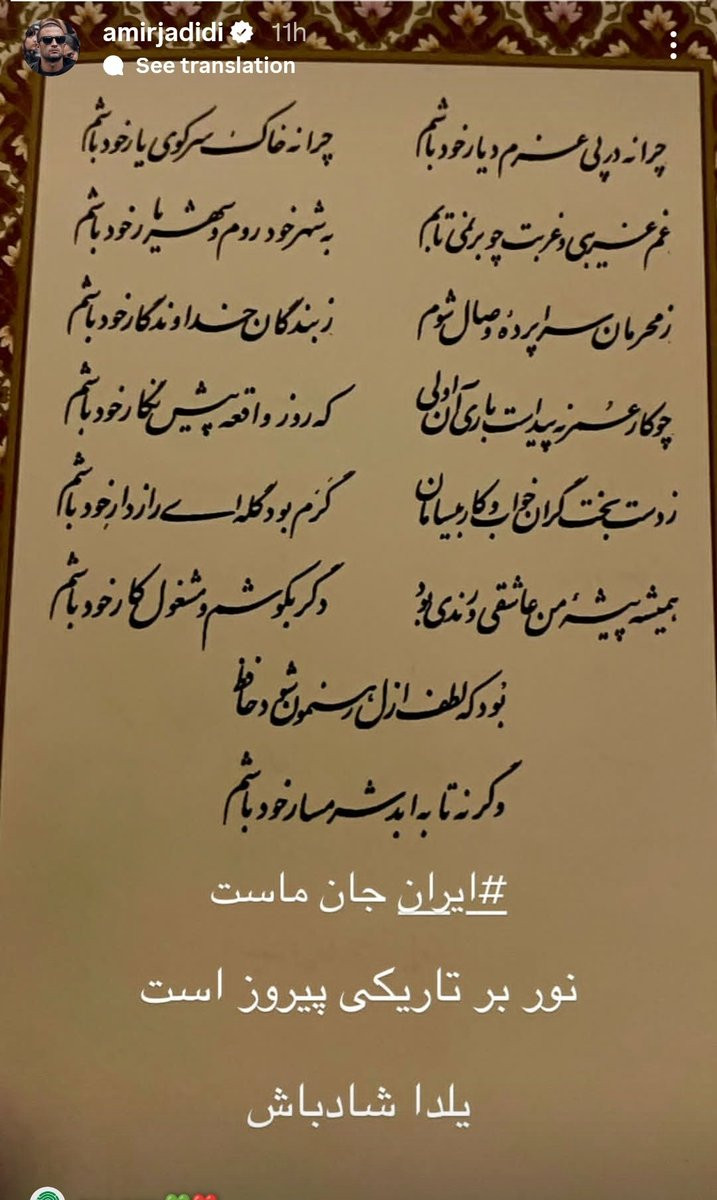 amirjadidi 11h
See translation
چرا نه در پی عزم دیار خود باشم
چرا نه خاک سر کوی یار خود باشم
غم غریبی و غربت چو بر نمی تابم
به شهر خود روم و شهریار خود باشم
ز محرمان سراپردهٔ وصال شوم
ز بندگان خداوندگار خود باشم
چو کار عمر نه پیداست باری آن اولی
که روز واقعه پیش نگار خود باشم
ز دست بخت گران خواب و کار بیسامان
گرم بود گله ای رازدار خود باشم
همیشه پیشهٔ من عاشقی و رندی بود
دگر بکوشم و مشغول کار خود باشم
بود که لطف ازل رهنمون شود حافظ
وگرنه تا به ابد شرمسار خود باشم
#ایران جان ماست
نور بر تاریکی پیروز است
یلدا شادباش